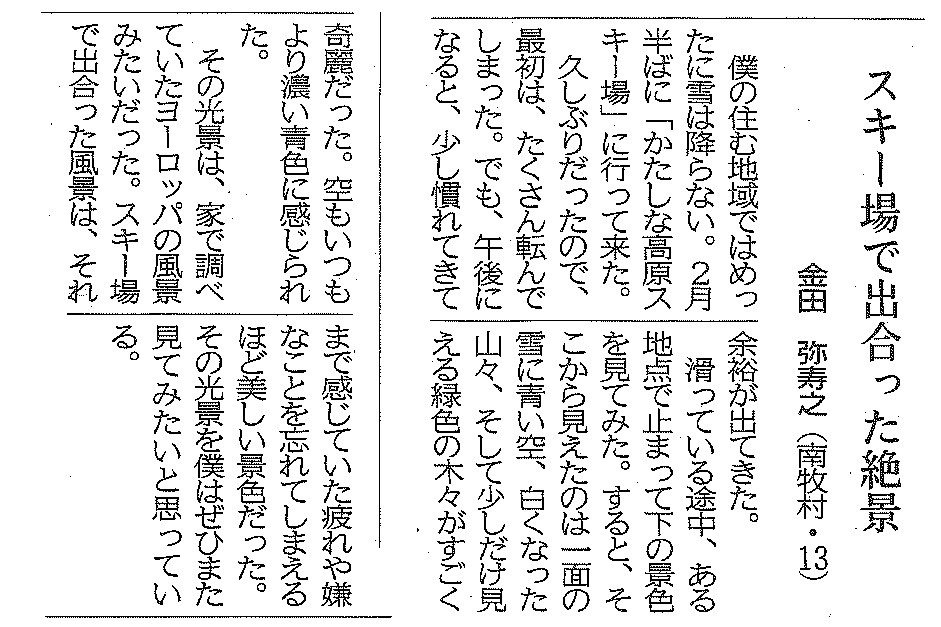 スキー場で出合った絶景
金田 弥寿之(南牧村・13)
僕の住む地域ではめっ
たに雪は降らない。2月
半ばに「かたしな高原ス
キー場」に行って来た。
久しぶりだったので、
最初は、たくさん転んで
しまった。でも、午後に
なると、少し慣れてきて
余裕が出てきた。
滑っている途中、ある
地点で止まって下の景色
を見てみた。すると、そ
こから見えたのは一面の
雪に青い空、白くなった
山々、そして少しだけ見
える緑色の木々がすごく
奇麗だった。空もいつも
より濃い青色に感じられ
た。
その光景は、家で調べ
ていたヨーロッパの風景
みたいだった。スキー場
で出合った風景は、それ
まで感じていた疲れや嫌
なことを忘れてしまえる
ほど美しい景色だった。
その光景を僕はぜひまた
見てみたいと思ってい
る。